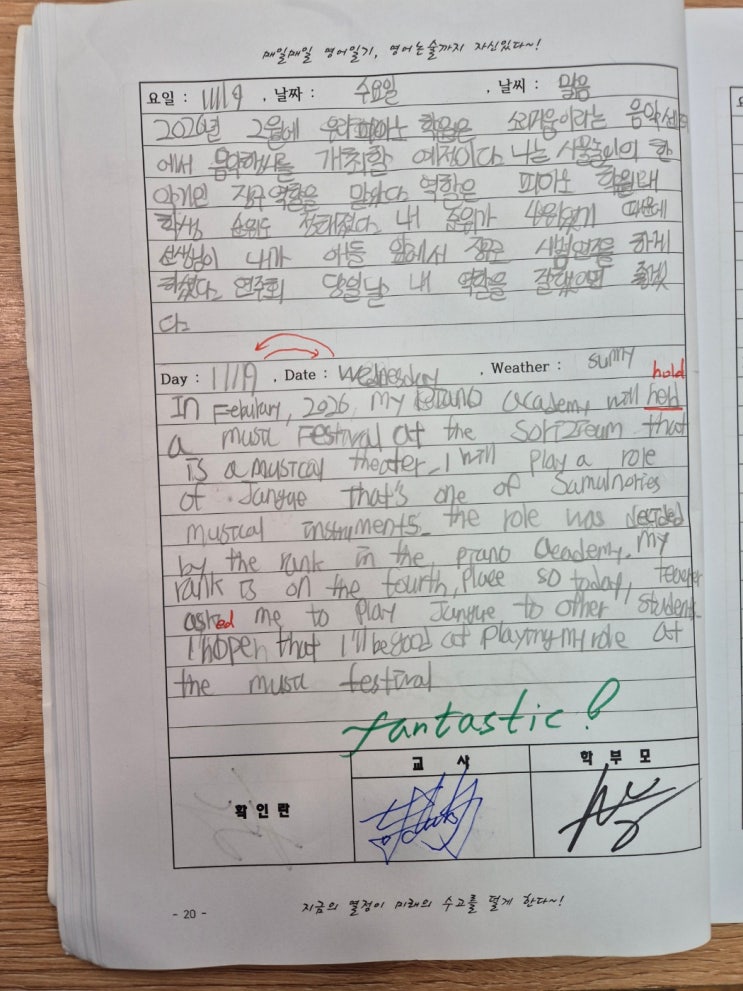 매일매일 영어일기, 영어는 술까지 자신있다~!
요일 : 11/19 , 날짜 : 수요일 , 날씨 : 맑음
2026년 2월에 우리 피아노 학원은 소리지움이라는 음악센터
에서 음악회를 개최할 예정이다. 나는 사물놀이의 한
악기인 장구 역할을 맡았다. 역할은 피아노 학원내
학생 순위로 정해졌다. 내 순위가 4위였기 때문에
선생님이 나가 아이들 앞에서 장구 시범연주를 하게
하셨다. 연주회 당일날 내 역할을 잘했으면 좋겠
다.
Day : 11/19 , Date : Wednesday , Weather : sunny
hold
In Febulary, 2026, my piano academy will held
a music Festival at the Sorizieum that
is a musical theater. I will play a role
of Jangue that's one of Samulnories
musical instruments. the role was decided
by the rank in the piano academy. my
rank is on the fourth place so today, teacher
asked me to play Jangue, to other students.
I hopen that I'll be good at playing my role at
the music festival
fantastic!
교 사 학 부 모
확 인 란
- 20 - 지금의 열정이 미래의 수고를 덜게 한다~!